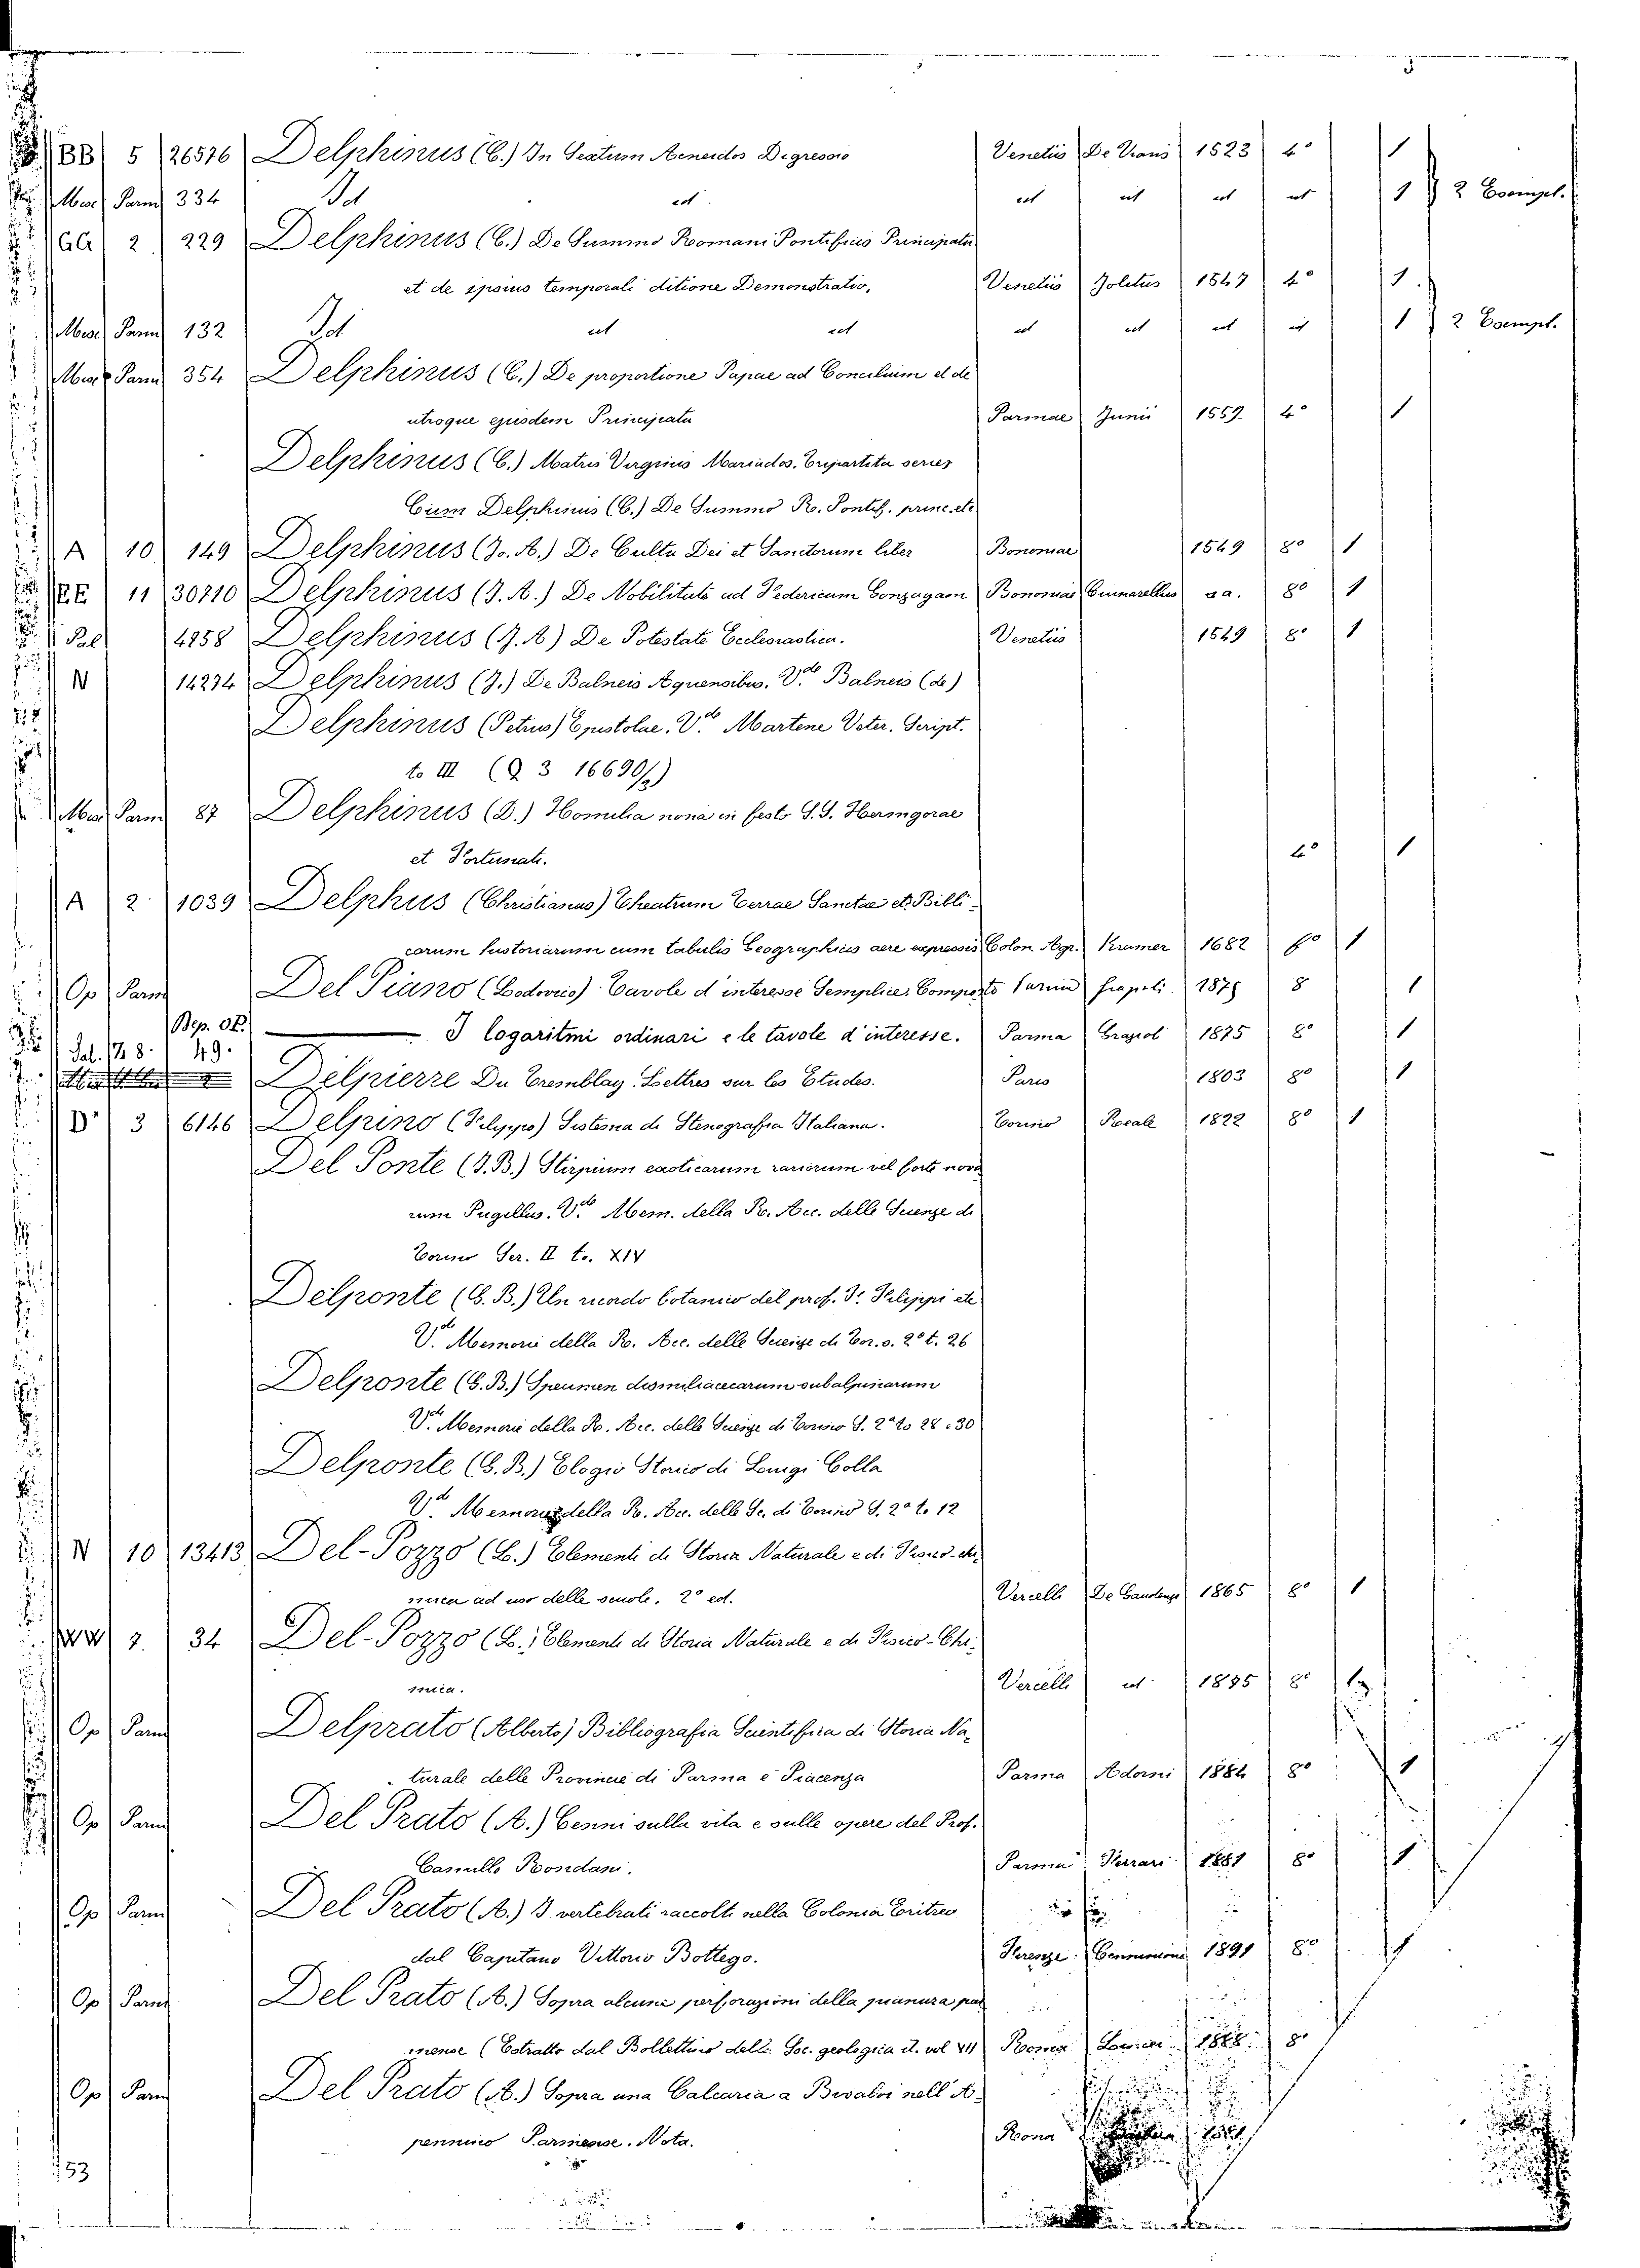 BB 5 26516 Delphinus (C.) In Sextum Aeneidos Digressio Venetiis De Vianis 1523 4° 1
Misc. Parm. 334 Id. id. id. id. id. id. 1 2 Esempl.
GG 2 229 Delphinus (C.) De Summo Romani Pontificis Principatu
et de ipsius temporali ditione Demonstratio, Venetiis Jolitus 1547 4° 1.
Misc. Parm. 132 Id. id. id. id. id. id. id. 1 2 Esempl.
Misc. Parm. 354 Delphinus (C.) De proportione Papae ad Concilium et de
utroque ejusdem Principatu Parmae Junii 1559 4° 1
Delphinus (C.) Matris Virginis Mariados. Tripartita series
Cum Delphinus (C.) De Summo R. Pontif. princ. etc
A 10 149 Delphinus (Jo. A.) De Cultu Dei et Sanctorum liber Bononiae 1549 8° 1
EE 11 30710 Delphinus (J. A.) De Nobilitate ad Federicum Gonzagam Bononiae aa. 8° 1
Pal 4258 Delphinus (J. A) De Potestate Ecclesiastica. Venetiis 1549 8° 1
N 14234 Delphinus (J.) De Balneis Aquensibus. V.de Balneis (de)
Delphinus (Petrus) Epistolae. V.de Martene Veter. Script.
to III (Q 3 16690/2)
Misc. Parm. 87 Delphinus (D.) Homilia nona in festo S.S. Hermgorae
et Fortunati. 4° 1
A 2 1039 Delphus (Christianus) Theatrum Terrae Sanctae et Bibli-
carum historiarum cum tabulis Geographicis aere expressis Colon. Agr. Kramer 1682 f° 1
Op Parm Del Piano (Lodovico) Tavole d'interesse Semplice, Composto 187 8 1
Bep. OE. I logaritmi ordinari e le tavole d'interesse. Parma Grazioli 1875 8° 1
Sal. 128. 49. Delpierre Du Tremblay Lettres sur les Etudes. Paris 1803 8° 1
D 3 6146 Delpino (Filippo) Sistema di Stenografia Italiana. Torino Reale 1822 8° 1
Del Ponte (J. B.) Stirpium exoticarum rariorum vel forte nova
rum Pugillus. V.de Mem. della R. Acc. delle Scienze di
Torino Ser. II to. XIV
Delponte (G. B.) Un ricordo botanico del prof. F. Filippi etc
V.de Memorie della R. Acc. delle Scienze di Tor. s. 2a t. 26
Delponte (G. B.) Specimen desmidiacearum subalpinarum
V.de Memorie della R. Acc. delle Scienze di Torino S. 2a to 28 e 30
Delponte (G. B.) Elogio Storico di Luigi Colla
V.de Memorie della R. Acc. delle Sc. di Torino S. 2a to 12
N 10 13413 Del-Pozzo (E.) Elementi di Storia Naturale e di Fisico-chi-
mica ad uso delle scuole. 2a ed. Vercelli De Gaudenzi 1865 8° 1
2. 34 Del-Pozzo (E.) Elementi di Storia Naturale e di Fisico-Chi-
mica. Vercelli id. 1875 8°
Op Parm Delprato (Alberto) Bibliografia Scientifica di Storia Na-
turale delle Provincie di Parma e Piacenza Parma Adorni 1884 8° 1
Op Parm Del Prato (A.) Cenni sulla vita e sulle opere del Prof.
Camillo Rondani. Parma Ferrari 1881 8° 1
Op Parm Del Prato (A.) I vertebrati raccolti nella Colonia Eritrea
dal Capitano Vittorio Bottego. Firenze 1891 8° 1
Op Parm Del Prato (A.) Sopra alcune perforazioni della pianura par
mense (Estratto dal Bollettino della Soc. geologica it. vol VII Roma 1888 8°
Op Parm Del Prato (A.) Sopra una Calcaria a Bivalvi nell'A-
pennino Parmense. Nota. Roma
153